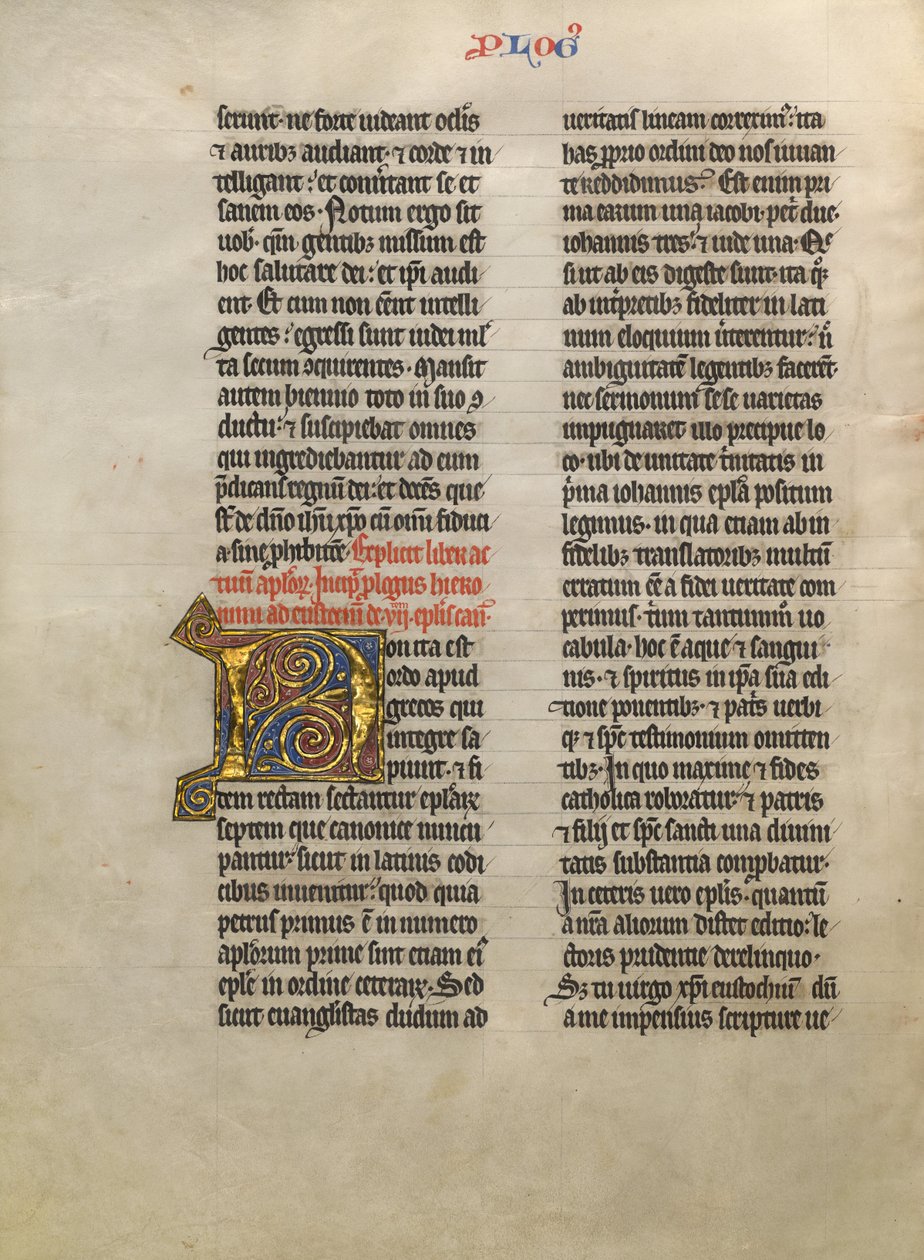 PLOG᾽
serunt· ne forte uideant octis
⁊ auribꝫ audiant· ⁊ corde ⁊ in
telligant: et conu̾tant se et
sanem eos· Notum ergo sit
uob̾· qm̄ gentibꝫ missum est
hoc salutare dei: et ip̄i audi
ent· Et cum non eēnt intelli
gentes: egressi sunt iudei ml̾
ta secum ꝯquirentes· Mansit
autem biennio toto in suo ꝯ
ductu: ⁊ suscipiebat omnes
qui ingrediebantur ad eum
p̄dicans regnū dei: et docēs que
st̄ de dn̄o ih̄u xp̄o cū om̄i fiduci
a· sine ꝓhibitōe· Explicit liber ac
tuū apl̾oꝝ· Incip̄ ꝓlogus hiero
nimi ad eustociū de· vij· ep̄lis can̄·
Non ita est
ordo apud
grecos qui
integre sa
piunt· ⁊ fi
dem rectam sectantur ep̄laꝝ
septem que canonice nuncu
pantur: sicut in latinis codi
cibus inuenitur: quod quia
petrus primus ē in numero
apl̾orum prime sint etiam ei᾽
ep̄le in ordine ceteraꝝ· Sed
sicut euangl̾istas dudum ad
ueritatis lineam correxim᾽: ita
has ꝓprio ordini deo nos iuuan
te reddidimus: Est enim pri
ma earum una iacobi· pet̾ due·
iohannis tres: ⁊ iude una· Qͤ
si ut ab eis digeste sunt· ita qͦꝫ
ab int̾pretibꝫ fideliter in lati
num eloquium u̾terentur: nͦ
ambiguitatē legentibꝫ facerēt·
nec sermonum sese uarietas
impugnaret illo precipue lo
co· ubi de unitate t̾nitatis in
p̾ma iohannis ep̄la positum
legimus· in qua etiam ab in
fidelibꝫ translatoribꝫ multū
erratum eē a fidei ueritate com
perimus· t̾um tantummͦ uo
cabula· hoc ē aque ⁊ sangui
nis· ⁊ spiritus in ip̄a sua edi
tione ponentibꝫ· ⁊ pat̾s uerbi
qꝫ ⁊ sp̄c testimonium omitten
tibꝫ· In quo maxime ⁊ fides
catholica roboratur: ⁊ patris
⁊ filij et sp̄c sancti una diuini
tatis substantia comꝓbatur·
In ceteris uero ep̄lis· quantū
a nr̄a aliorum distet editio: le
ctoris prudentie derelinquo·
Sꝫ tu uirgo xp̄i eustochiū dū
a me impensius scripture ue